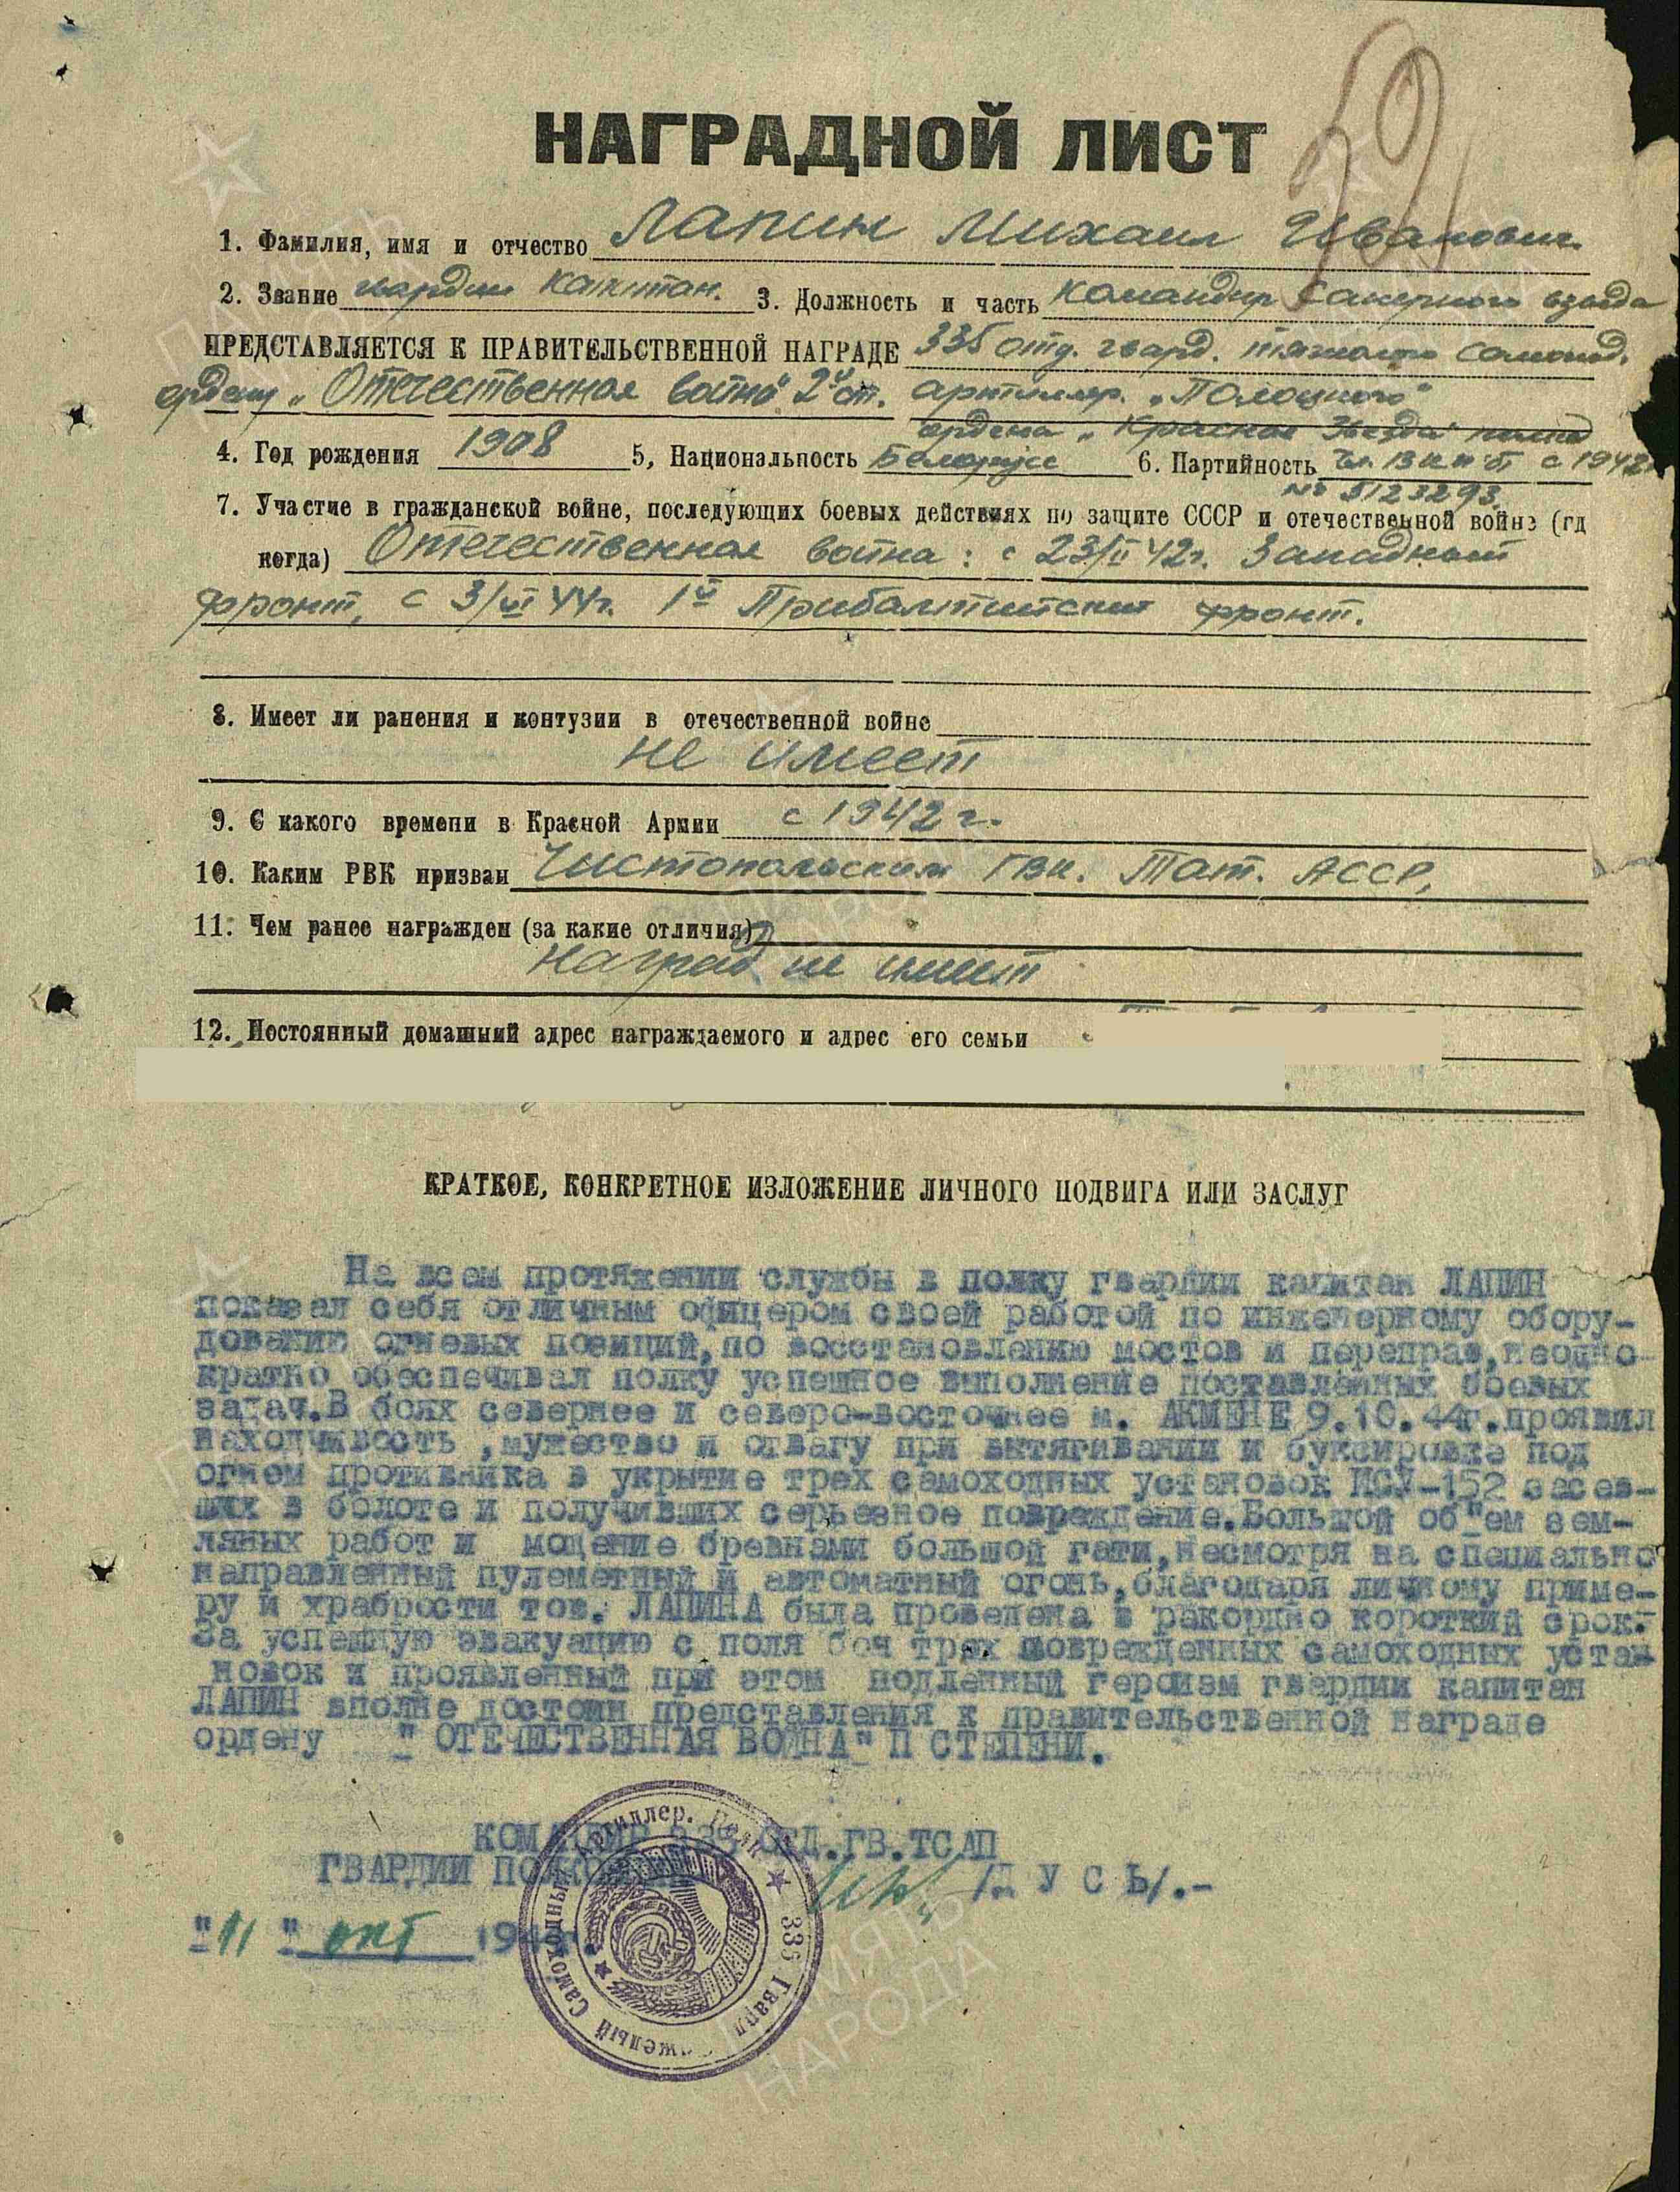 59
НАГРАДНОЙ ЛИСТ
1. Фамилия, имя и отчество Лапин Михаил Иванович
2. Звание гвардии Капитан. 3. Должность и часть Командир Саперного взвода
ПРЕДСТАВЛЯЕТСЯ К ПРАВИТЕЛЬСТВЕННОЙ НАГРАДЕ 335 отд. гвард. тяжелого самоход.
ордену „Отечественная война" 2й ст. артиллер. „Полоцкого"
ордена „Красная Звезда" полка
4. Год рождения 1908 5, Национальность Белорусс 6. Партийность Чл. ВКП(б) с 1942г.
№ 5123293.
7. Участие в гражданской войне, последующих боевых действиях по защите СССР и отечественной войне (гд
когда) Отечественная война: с 23/II 42г. Западный
фронт, с 3/VI 44г. 1й Прибалтийский фронт.
8. Имеет ли ранения и контузии в отечественной войне
не имеет
9. С какого времени в Красной Армии с 1942 г.
10. Каким РВК призван Чистопольским ГВК. Тат. АССР,
11. Чем ранее награжден (за какие отличия)
Наград не имеет
12. Постоянный домашний адрес награждаемого и адрес его семьи
КРАТКОЕ, КОНКРЕТНОЕ ИЗЛОЖЕНИЕ ЛИЧНОГО ПОДВИГА ИЛИ ЗАСЛУГ
На всем протяжении службы в полку гвардии капитан ЛАПИН
показал себя отличным офицером своей работой по инженерному обору-
дованию огневых позиций, по восстановлению мостов и переправ, неодно-
кратно обеспечивал полку успешное выполнение поставленных боевых
задач. В боях севернее и северо-восточнее м. АКМЕНЕ 9.10.44г. проявил
находчивость, мужество и отвагу при вытягивании и буксировке под
огнем противника в укрытие трех самоходных установок ИСУ-152 засев-
ших в болоте и получивших серьезное повреждение. Большой об"ем зем-
ляных работ и мощение бревнами большой гати, несмотря на специально
направленный пулеметный и автоматный огонь, благодаря личному приме-
ру и храбрости тов. ЛАПИНА была проведена в рекордно короткий срок.
За успешную эвакуацию с поля боя трех поврежденных самоходных устан
новок и проявленный при этом подленный героизм гвардии капитан
ЛАПИН вполне достоин представления к правительственной награде
ордену " ОТЕЧЕСТВЕННАЯ ВОЙНА" П СТЕПЕНИ.
КОМАНДИР 335 ОТД.ГВ.ТСАП
ГВАРДИИ ПОЛКОВНИК /Д У С Ь/.-
"11" окт 194
335 Гвард Тяжелый Самоходный Артиллер. Полк
ПАМЯТЬ НАРОДА